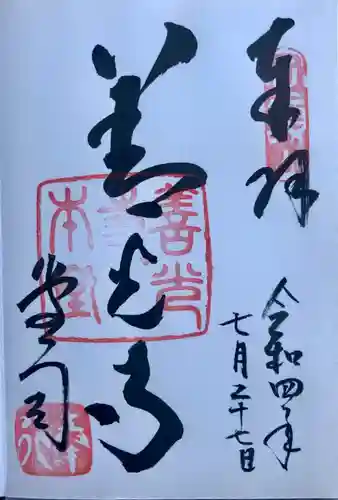 奉拝
令和四年
七月二十七日
善光寺
堂司
善光寺
本堂